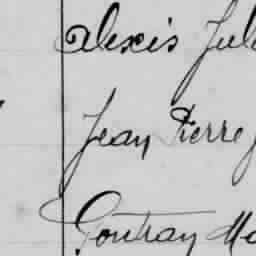 Alexis Jul
Jean Pierre J
Gontran Ma